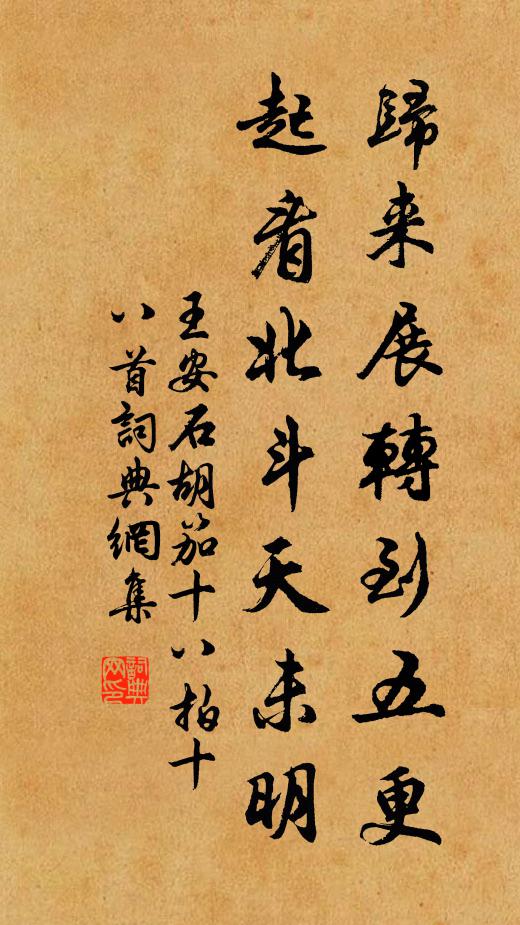 歸来展轉到五更
起看北斗天未明
王安石胡笳十八拍十
八首詞典網集
詞典
网印